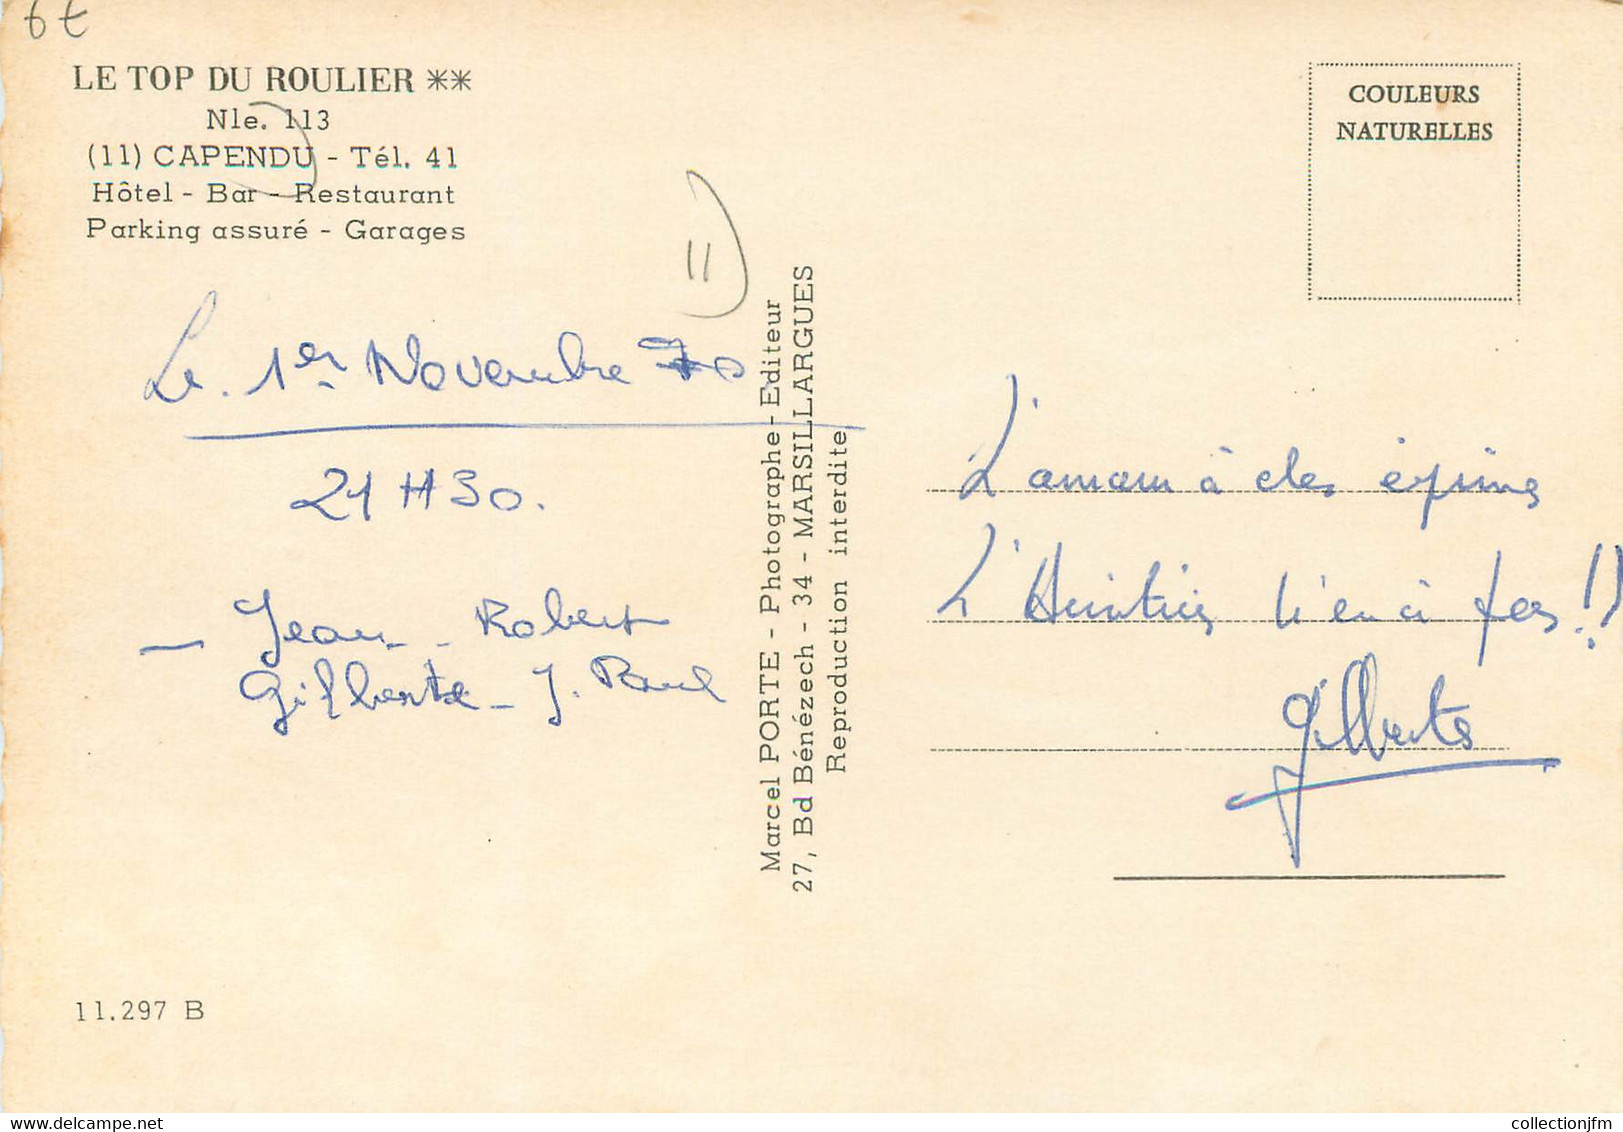 6€
LE TOP DU ROULIER **
Nle. 113
(11) CAPENDU - Tél. 41
Hôtel - Bar - Restaurant
Parking assuré - Garages
11)
Le. 1er Novembre 70
21 H 30.
— Jean - Robert
Gilberte - J. Paul
11.297 B
Marcel PORTE - Photographe-Editeur
27, Bd Bénézech - 34 - MARSILLARGUES
Reproduction interdite
COULEURS
NATURELLES
L'amour à des épines
L' n'en a pas !!
Gilberte
collectionjfm